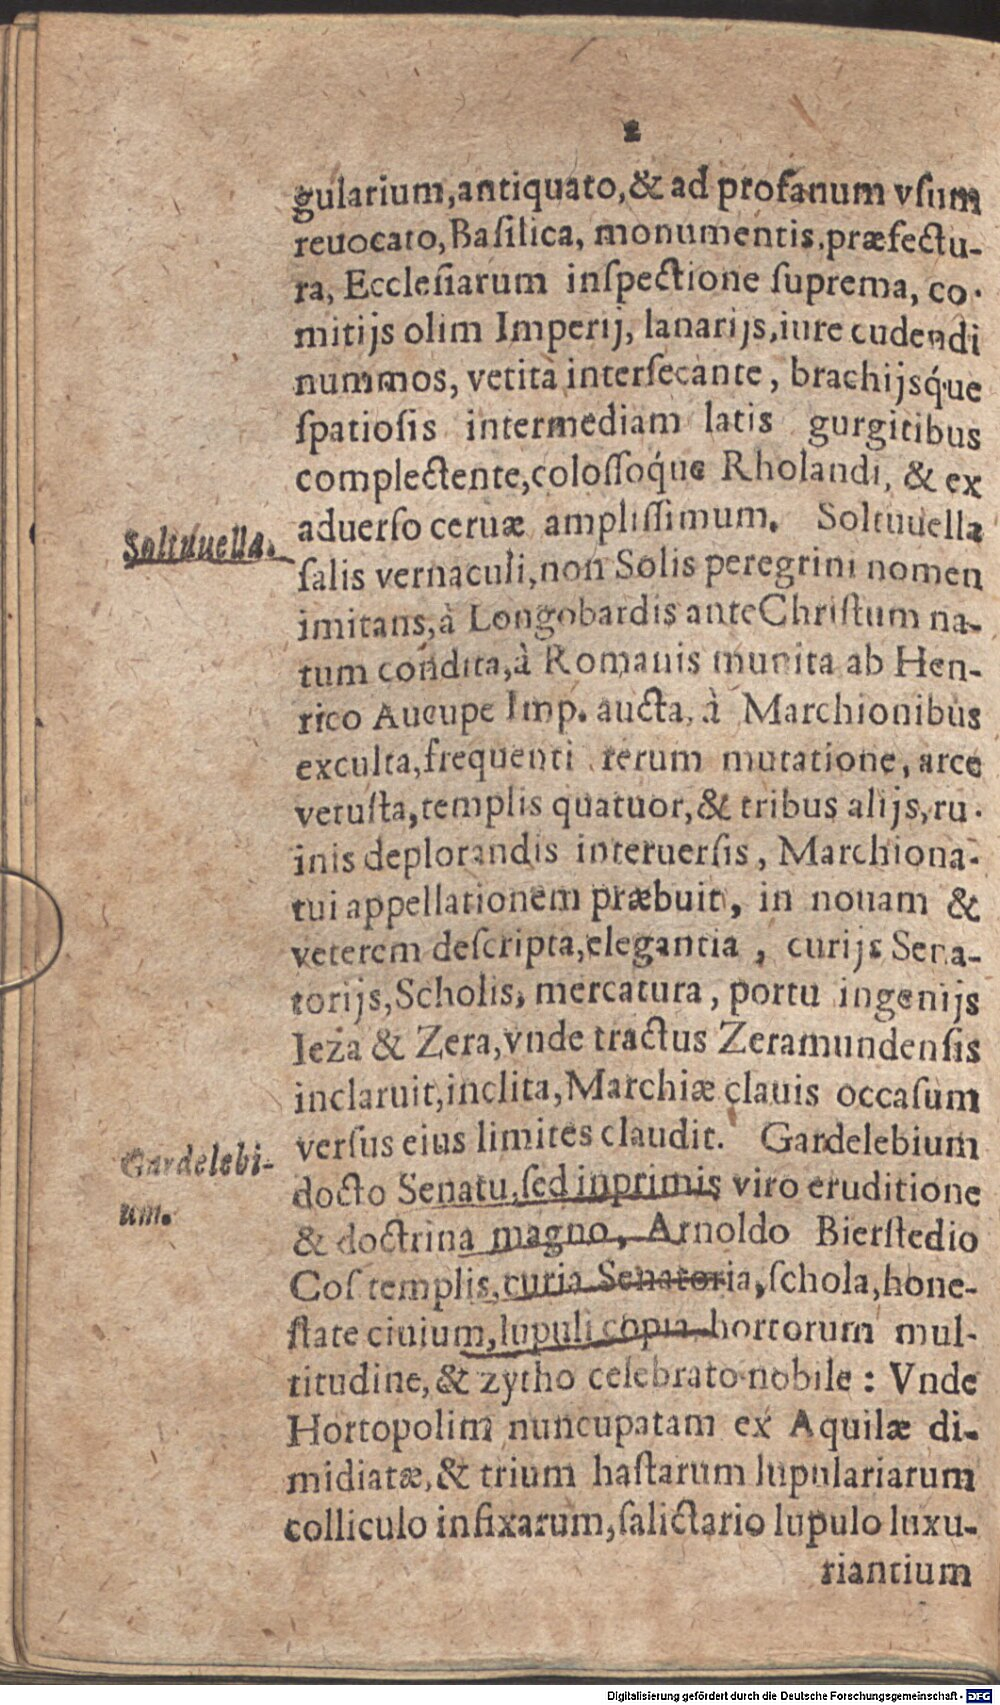 2
gularium,antiquato,& ad profanum vſum
reuocato,Baſilica, monumentis,præfectu-
ra, Eccleſiarum inſpectione ſuprema, co-
mitijs olim Imperij, lanarijs,iure cudendi
nummos, vetita interſecante, brachijsq́ue
ſpatioſis intermediam latis gurgitibus
complectente,coloſſoq́ue Rholandi, & ex
aduerſo ceruæ ampliſſimum. Soltuuella
Soltuuella.
ſalis vernaculi,non Solis peregrini nomen
imitans,à Longobardis ante Chriſtum na-
tum condita,à Romanis munita ab Hen-
rico Aucupe Imp. aucta, à Marchionibus
exculta,frequenti rerum mutatione, arce
vetuſta,templis quatuor,& tribus alijs,ru-
inis deplorandis interuerſis, Marchiona-
tui appellationem præbuit, in nouam &
veterem deſcripta,elegantia, curijs Sena-
torijs,Scholis, mercatura, portu ingenijs
Ieza & Zera,vnde tractus Zeramundenſis
inclaruit,inclita,Marchiæ clauis occaſum
verſus eius limites claudit. Gardelebium
Gardelebi-
um.
docto Senatu,ſed inprimis viro eruditione
& doctrina magno, Arnoldo Bierſtedio
Coſ templis,curia Senatoria,ſchola,hone-
ſtate ciuium,lupuli copia,hortorum mul-
titudine,& zytho celebrato nobile: Vnde
Hortopolim nuncupatam ex Aquilæ di-
midiatæ,& trium haſtarum lupulariarum
colliculo infixarum,ſalictario lupulo luxu-
riantium
Digitalisierung gefördert durch die Deutsche Forschungsgemeinschaft - DFG